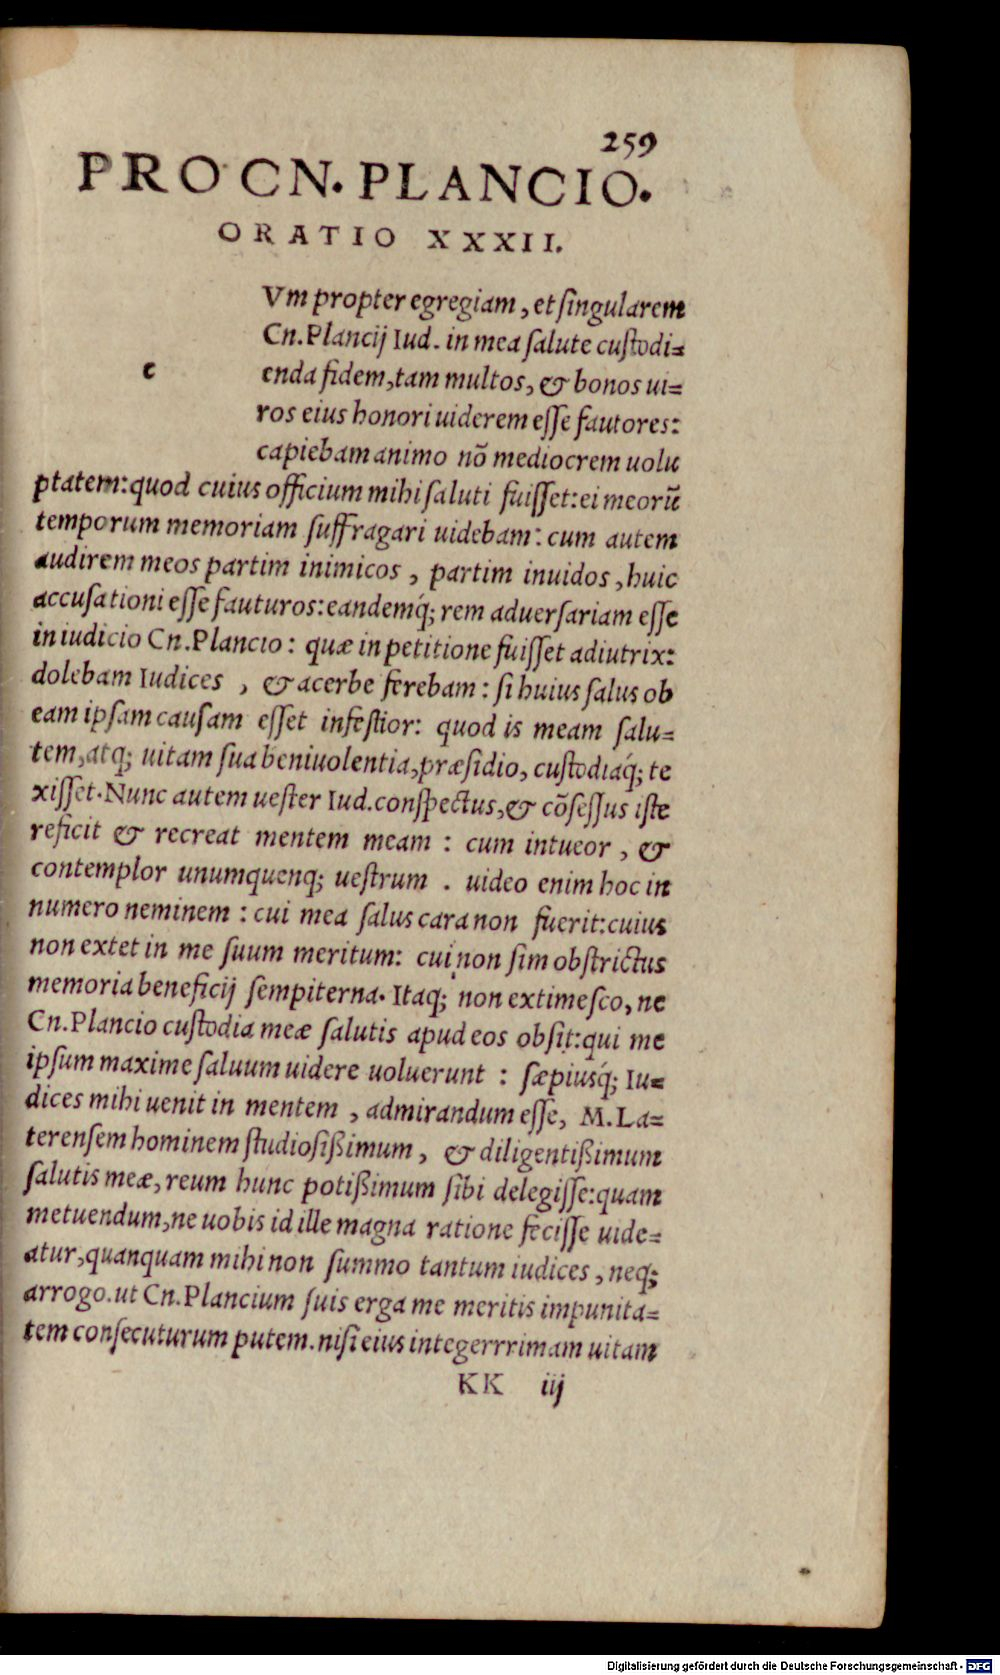 259
PRO CN. PLANCIO.
ORATIO XXXII.
Vm propter egregiam, et ſingularem
Cn. Plancij Iud. in mea ſalute cuſtodi=
c
enda fidem, tam multos, & bonos ui=
ros eius honori uiderem eſſe fautores:
capiebam animo nō mediocrem uolu
ptatem: quod cuius officium mihi ſaluti fuiſſet: ei meorū
temporum memoriam ſuffragari uidebam: cum autem
audirem meos partim inimicos, partim inuidos, huic
accuſationi eſſe fauturos: eandemq́; rem aduerſariam eſſe
in iudicio Cn. Plancio: quæ in petitione fuiſſet adiutrix:
dolebam Iudices, & acerbe ferebam: ſi huius ſalus ob
eam ipſam cauſam eſſet infeſtior: quod is meam ſalu=
tem, atq; uitam ſua beniuolentia, præſidio, cuſtodiaq́; te
xiſſet. Nunc autem ueſter Iud. conſpectus, & cōſeſſus iſte
reficit & recreat mentem meam: cum intueor, &
contemplor unumquenq; ueſtrum. uideo enim hoc in
numero neminem: cui mea ſalus cara non fuerit: cuius
non extet in me ſuum meritum: cui non ſim obſtrictus
memoria beneficij ſempiterna. Itaq; non extimeſco, ne
Cn. Plancio cuſtodia meæ ſalutis apud eos obſit: qui me
ipſum maxime ſaluum uidere uoluerunt: ſæpiusq́; Iu=
dices mihi uenit in mentem, admirandum eſſe, M. La=
terenſem hominem ſtudioſißimum, & diligentißimum
ſalutis meæ, reum hunc potißimum ſibi delegiſſe: quam
metuendum, ne uobis id ille magna ratione feciſſe uide=
atur, quanquam mihi non ſummo tantum iudices, neq;
arrogo. ut Cn. Plancium ſuis erga me meritis impunita=
tem conſecuturum putem. niſi eius integerrrimam uitam
KK iij
Digitalisierung gefördert durch die Deutsche Forschungsgemeinschaft - DFG